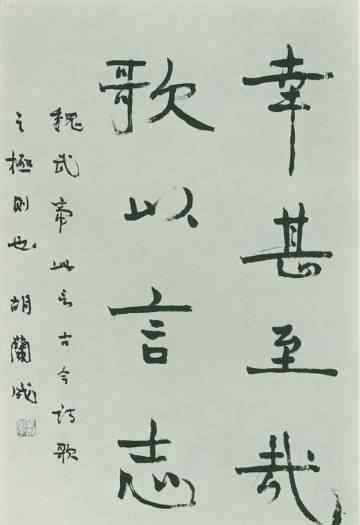 幸甚至哉
歌以言志
魏武帝此言古今詩歌
之極則也 胡蘭成